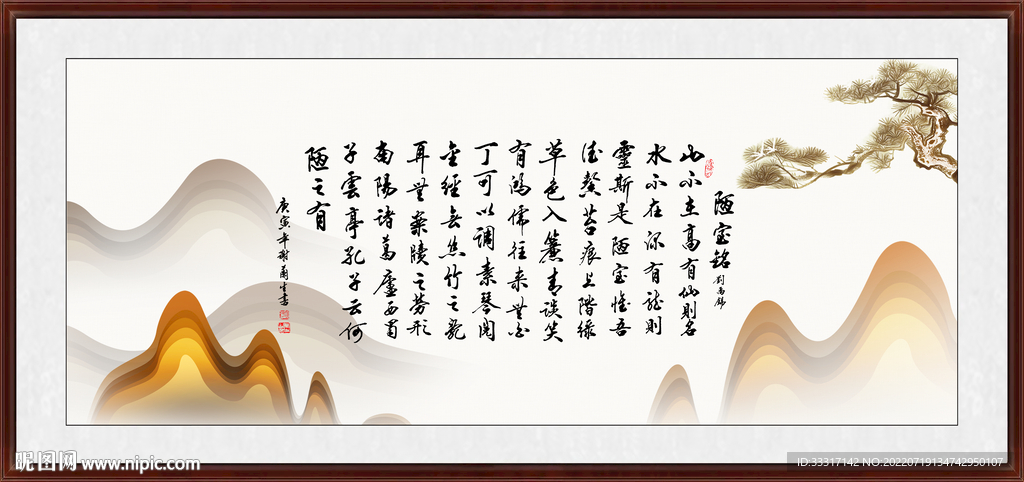 陋室铭
刘禹锡
山不在高有仙則名
水不在深有龙則
靈斯是陋室惟吾
德馨苔痕上階緑
草色入簾青談笑
有鴻儒往来無白
丁可以调素琴阅
金經無丝竹之亂
耳無案牘之劳形
南陽諸葛廬西蜀
子雲亭孔子云何
陋之有
庚寅年谢勇生書
昵图网 www.nipic.com
ID:33317142 NO:20220719134742950107